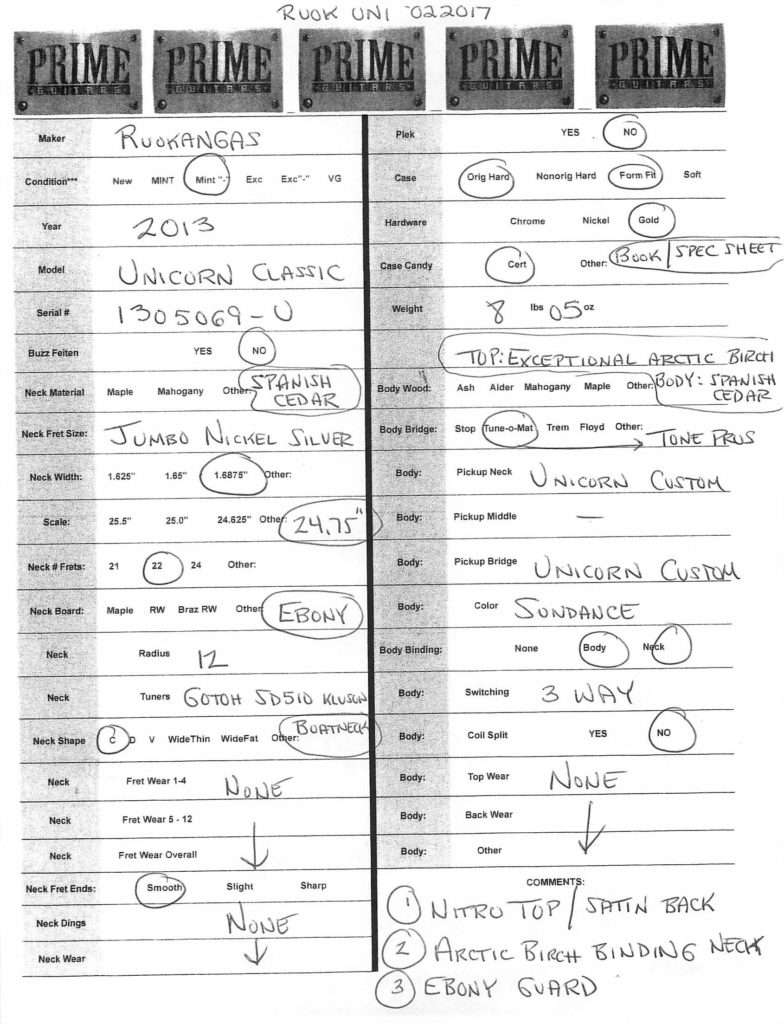 RUOK UNI 022017
PRIME GUITARS PRIME GUITARS PRIME GUITARS PRIME GUITARS PRIME GUITARS
Maker RUOKANGAS
Condition*** New MINT Mint "-" Exc Exc"-" VG
Year 2013
Model UNICORN CLASSIC
Serial # 1305069-U
Buzz Feiten YES NO
Neck Material Maple Mahogany Other: SPANISH CEDAR
Neck Fret Size: JUMBO NICKEL SILVER
Neck Width: 1.625" 1.65" 1.6875" Other:
Scale: 25.5" 25.0" 24.625" Other: 24.75"
Neck # Frets: 21 22 24 Other:
Neck Board: Maple RW Braz RW Other: EBONY
Neck Radius 12
Neck Tuners GOTOH SD510 KLUSON
Neck Shape C D V WideThin WideFat Other: BOATNECK
Neck Fret Wear 1-4 NONE
Neck Fret Wear 5 - 12
Neck Fret Wear Overall
Neck Fret Ends: Smooth Slight Sharp
Neck Dings NONE
Neck Wear
Plek YES NO
Case Orig Hard Nonorig Hard Form Fit Soft
Hardware Chrome Nickel Gold
Case Candy Cert Other: BOOK/SPEC SHEET
Weight 8 lbs 05 oz
TOP: EXCEPTIONAL ARCTIC BIRCH
Body Wood: Ash Alder Mahogany Maple Other: BODY: SPANISH CEDAR
Body Bridge: Stop Tune-o-Mat Trem Floyd Other: TONE PROS
Body: Pickup Neck UNICORN CUSTOM
Body: Pickup Middle —
Body: Pickup Bridge UNICORN CUSTOM
Body: Color SUNDANCE
Body Binding: None Body Neck
Body: Switching 3 WAY
Body: Coil Split YES NO
Body: Top Wear NONE
Body: Back Wear
Body: Other
COMMENTS:
1 NITRO TOP/SATIN BACK
2 ARCTIC BIRCH BINDING NECK
3 EBONY GUARD